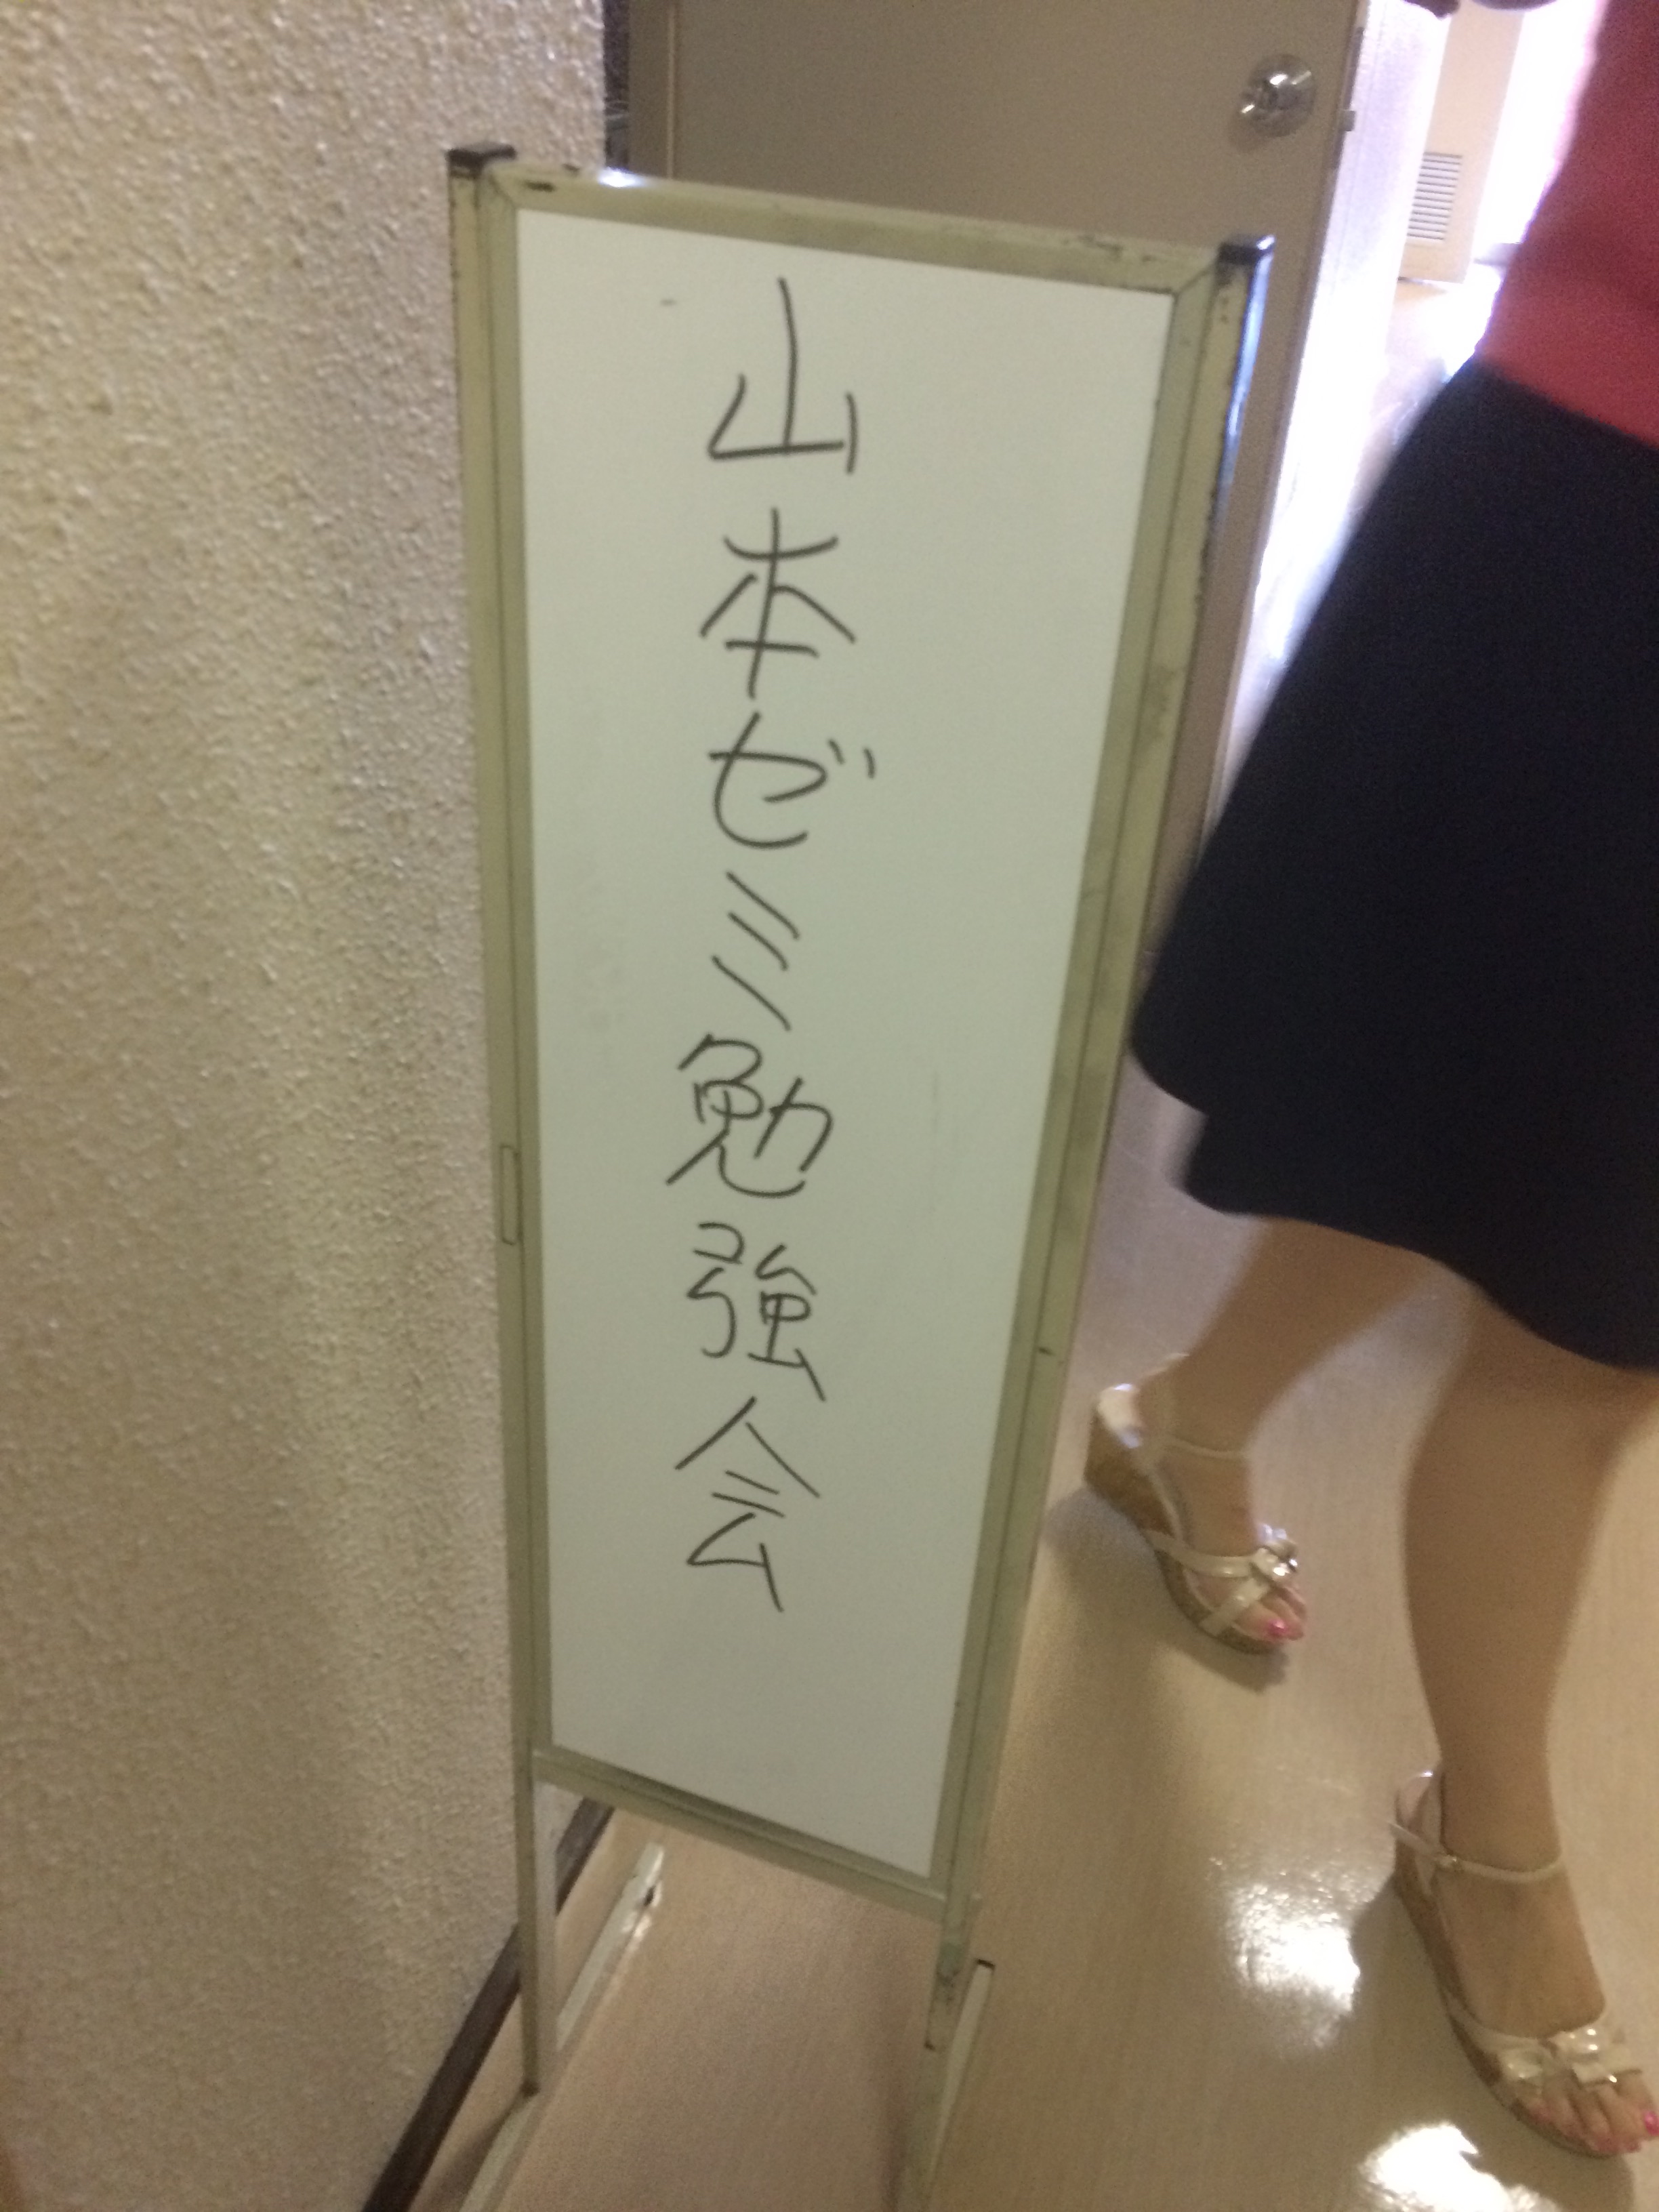 山本ゼミ勉強会